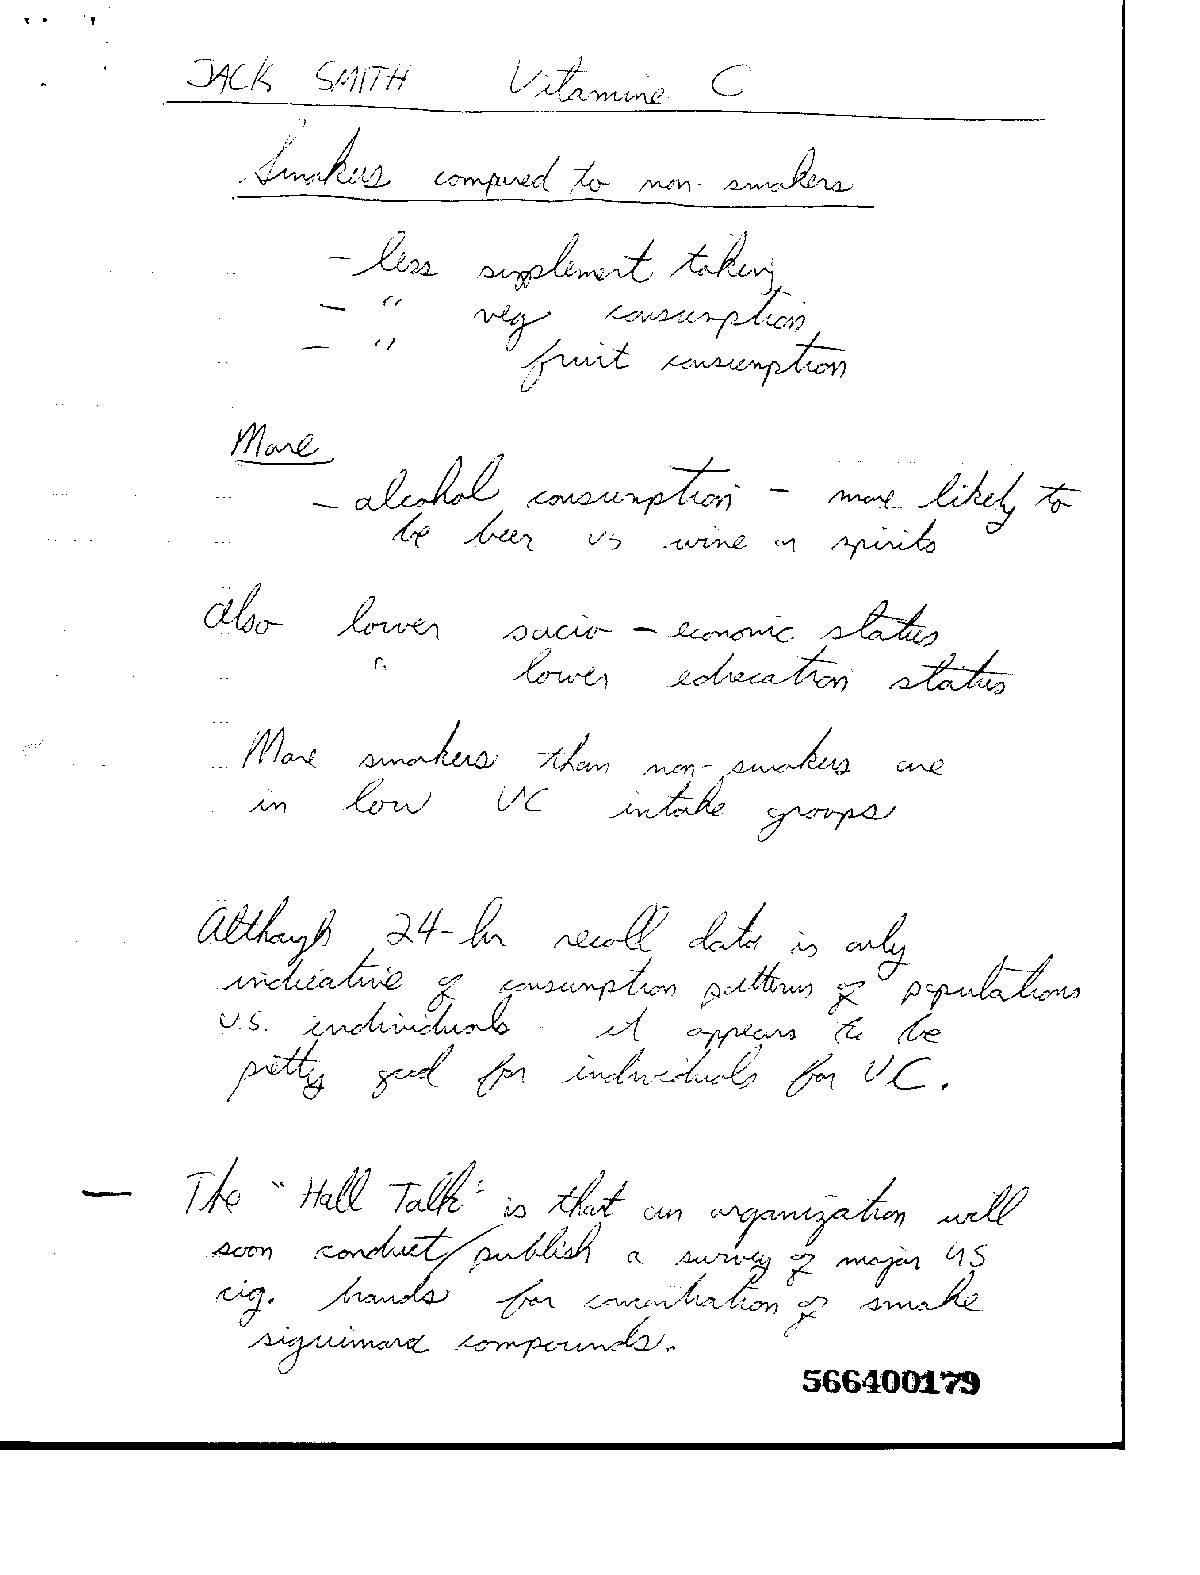 JACK SMITH Vitamine C
Smokers compared to non-smokers
- less supplement taking
- " veg consumption
- " fruit consumption
More
- alcohol consumption - more likely to
be beer vs wine or spirits
also lower socio-economic status
" lower education status
More smokers than non-smokers are
in low VC intake groups
Although 24-hr recall data is only
indicative of consumption patterns of populations
V.S. individuals it appears to be
pretty good for individuals for VC.
— The "Hall Talk" is that an organization will
soon conduct/publish a survey of major US
cig. brands for concentration of smoke
compounds.
566400179